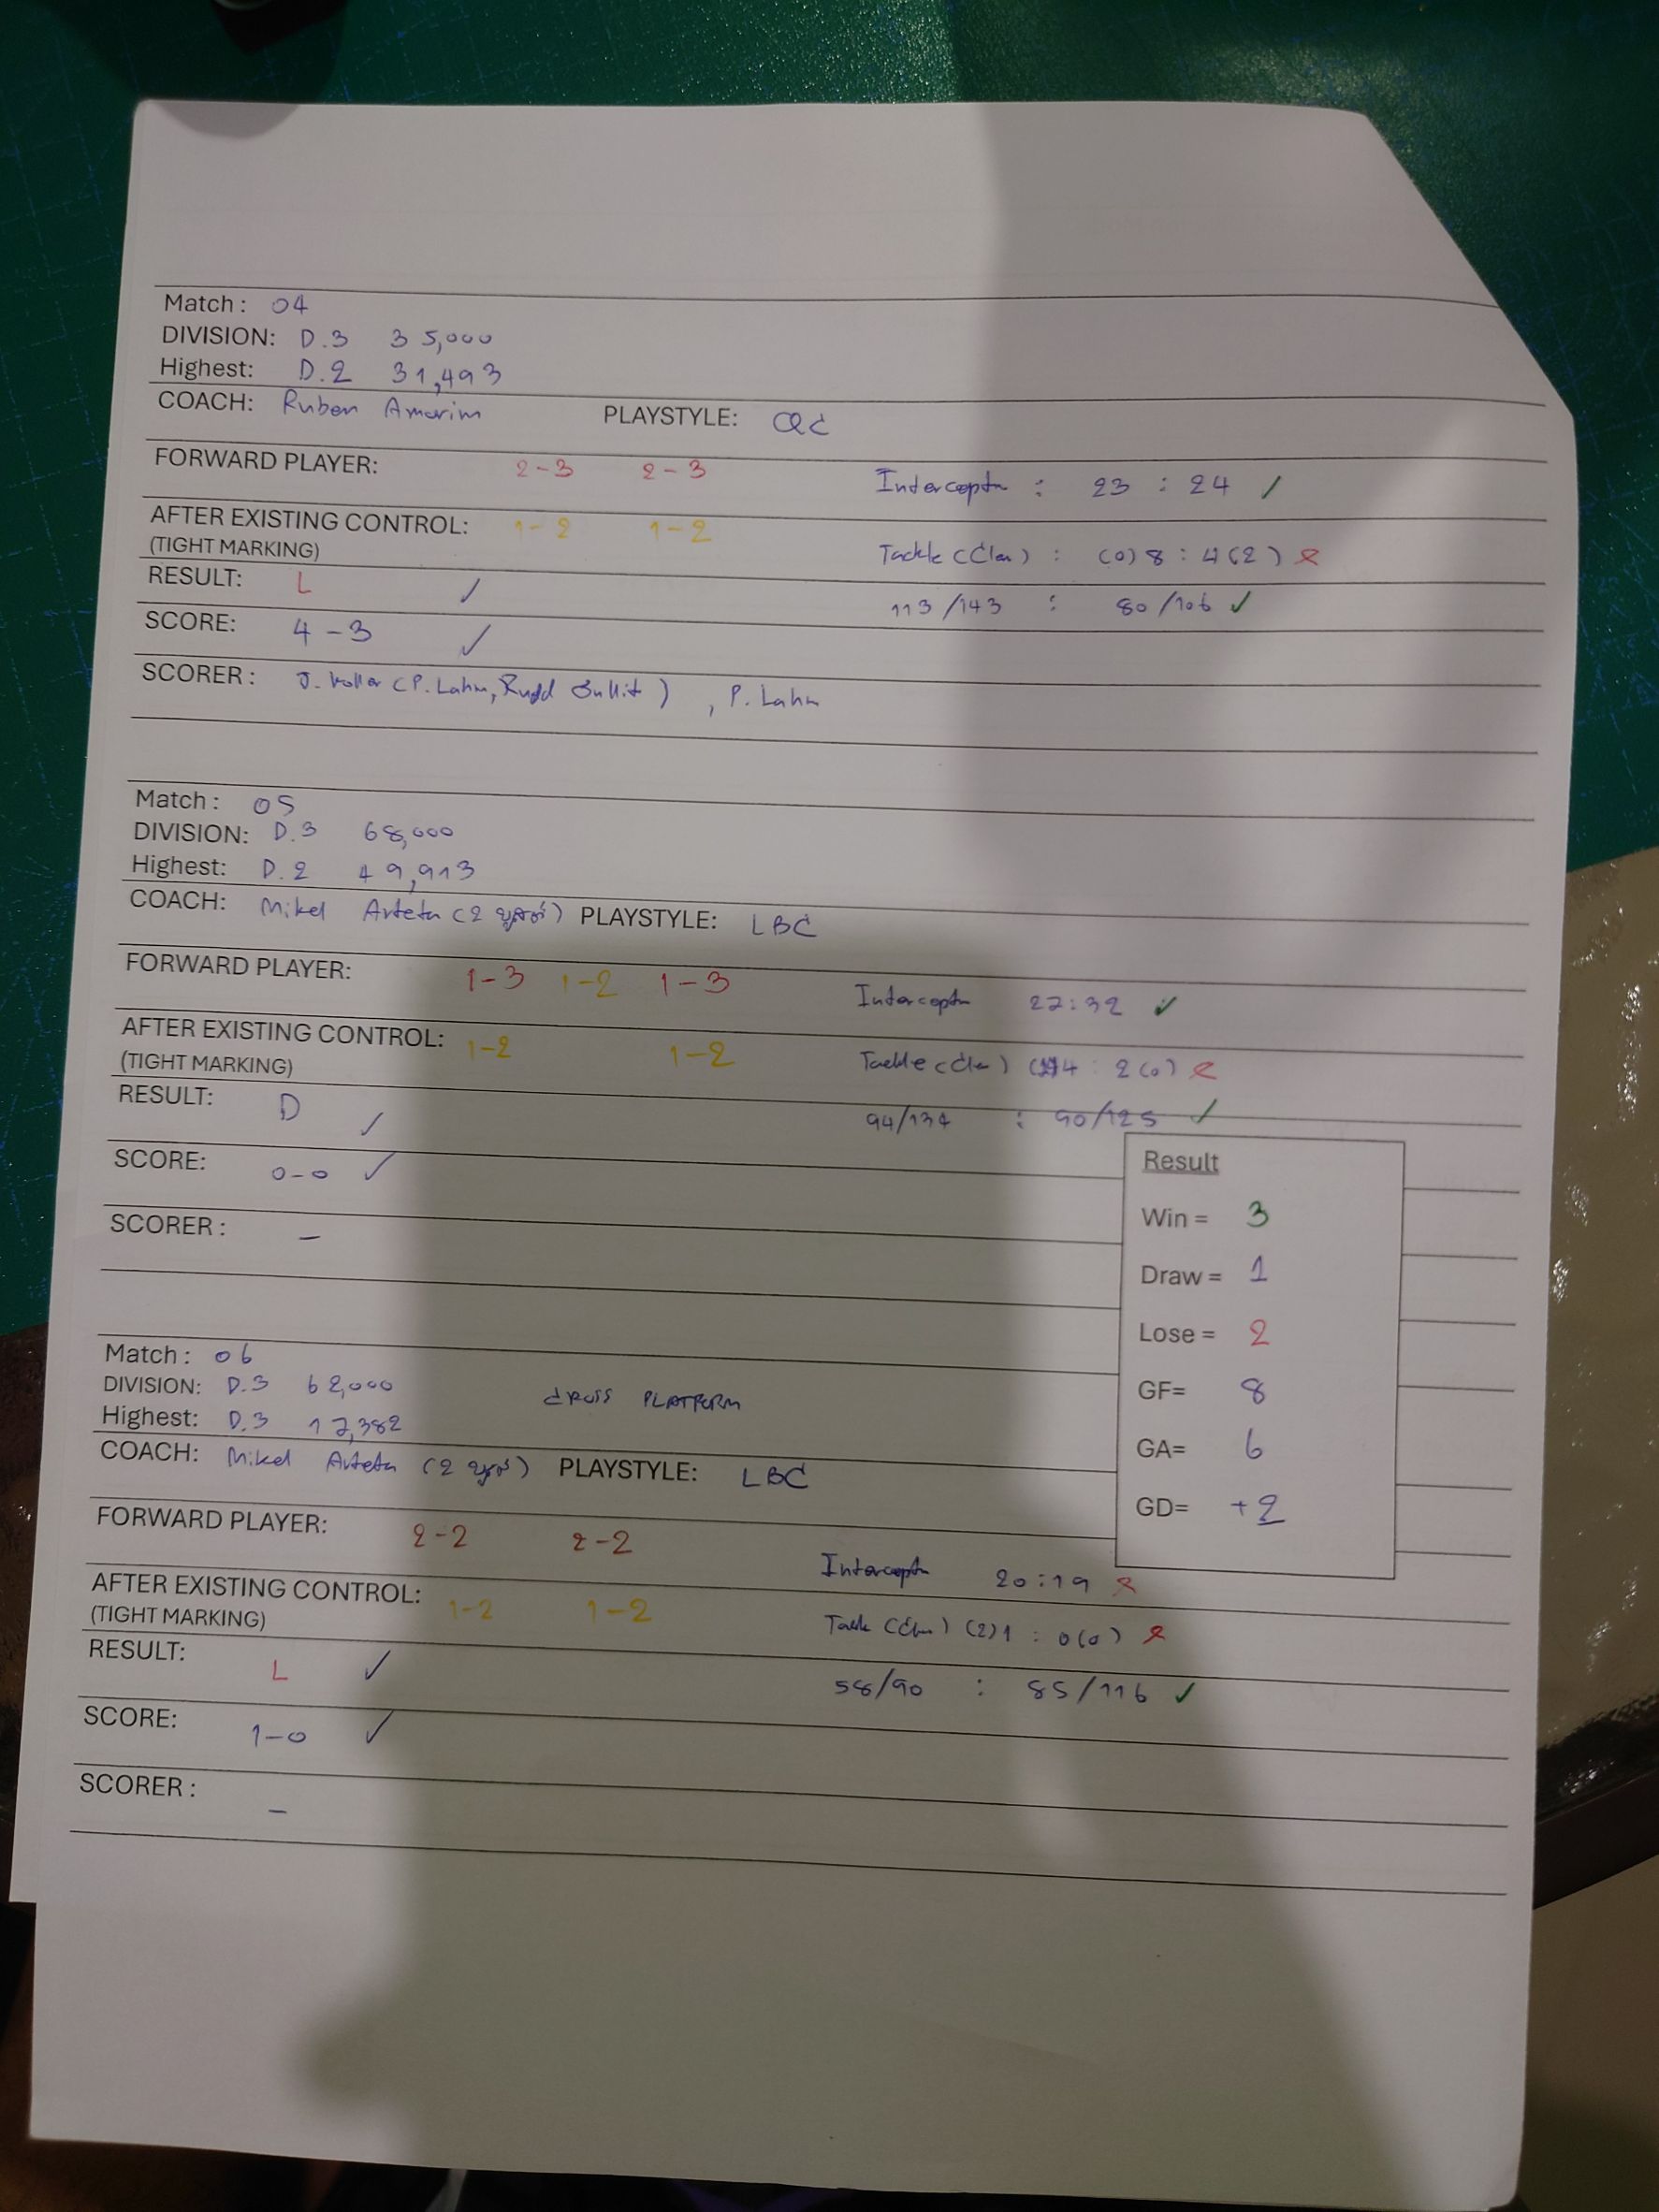 Match : 04
DIVISION: D.3 35,000
Highest: D.2 31,493
COACH: Ruben Amorim PLAYSTYLE: QC
FORWARD PLAYER: 2-3 2-3 Interceptn : 23 : 24 ✓
AFTER EXISTING CONTROL: 1-2 1-2
(TIGHT MARKING) Tackle (Clen) : (0) 8 : 4 (2) ✗
RESULT: L ✓ 113/143 : 80/106 ✓
SCORE: 4-3 ✓
SCORER : J. Koller (P. Lahm, Ruud Gullit) , P. Lahm
Match : 05
DIVISION: D.3 68,000
Highest: D.2 49,913
COACH: Mikel Arteta (2 PLAYSTYLE: LBC
FORWARD PLAYER: 1-3 1-2 1-3 Interceptn 27:32 ✓
AFTER EXISTING CONTROL: 1-2 1-2
(TIGHT MARKING) Tackle (Clen) 4 : 2 (0) ✗
RESULT: D ✓ 94/134 : 90/125 ✓
SCORE: 0-0 ✓
SCORER : -
Result
Win = 3
Draw = 1
Lose = 2
GF= 8
GA= 6
GD= +2
Match : 06
DIVISION: D.3 62,000 CROSS PLATFORM
Highest: D.3 17,382
COACH: Mikel Arteta (2 PLAYSTYLE: LBC
FORWARD PLAYER: 2-2 2-2 Interceptn 20:19 ✗
AFTER EXISTING CONTROL: 1-2 1-2
(TIGHT MARKING) (2) 1 : 0 (0) ✗
RESULT: L ✓ 58/90 : 85/116 ✓
SCORE: 1-0 ✓
SCORER : -